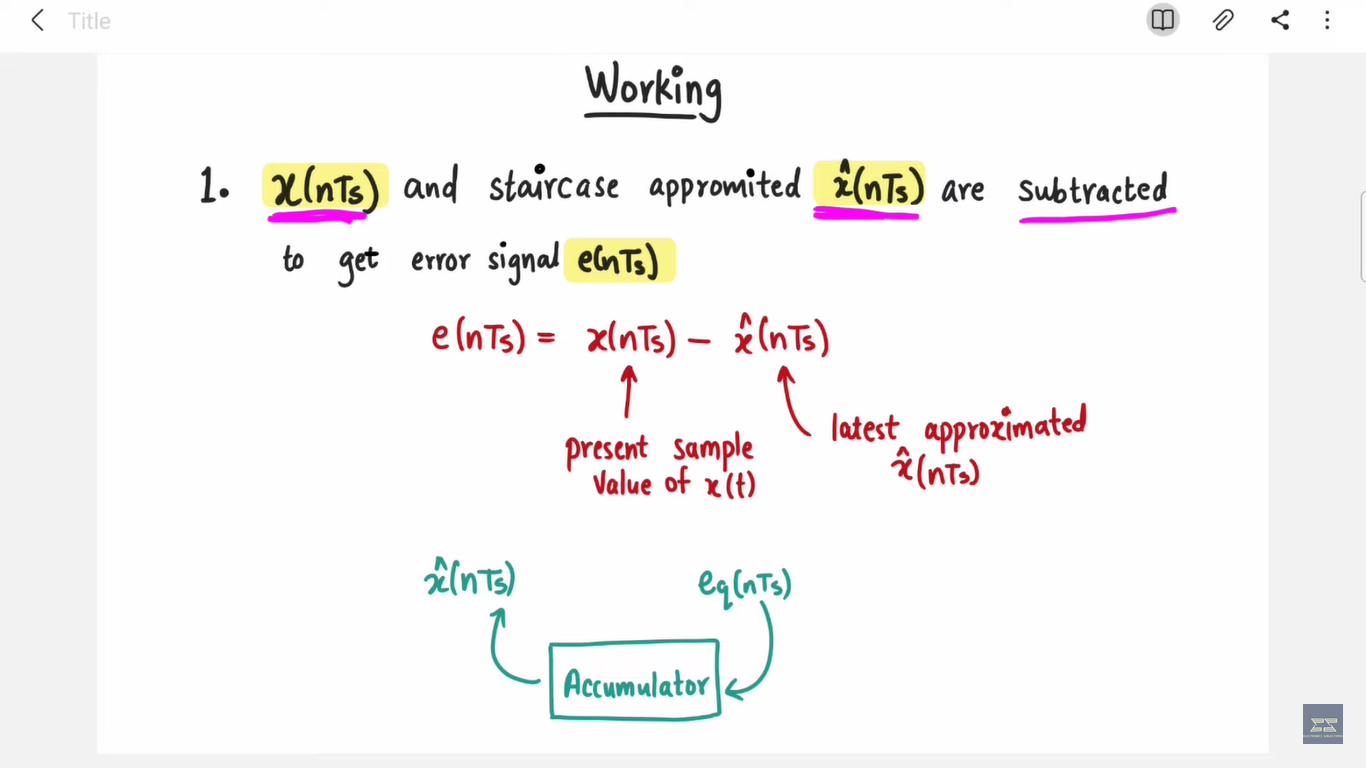 Title
Working
1. x(nTs) and staircase appromited x̂(nTs) are subtracted
to get error signal e(nTs)
e(nTs) = x(nTs) - x̂(nTs)
present sample
value of x(t)
latest approximated
x̂(nTs)
x̂(nTs)
eq(nTs)
Accumulator